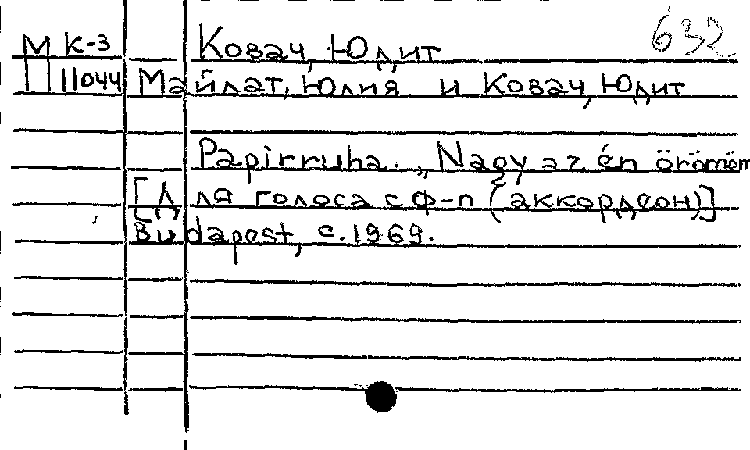 632
М К-3 Ковач, Юдит
П 11044 Майлат, Юлия и Ковач, Юдит
Papirruha. „Nagy az én örömöm
[Для голоса с ф-п (аккордеон)]
Budapest, c.1969.